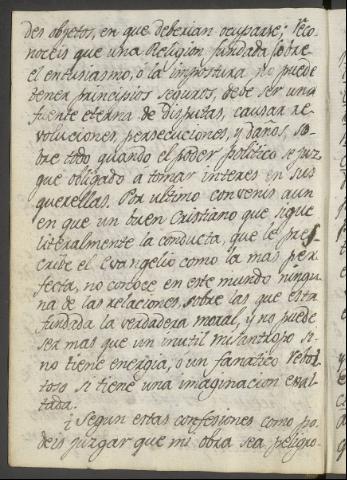 des objetos, en que deberian ocuparse; Reco
noceis que una Religion fundada sobre
el entusiasmo, o la impostura no puede
tener principios seguros, debe ser una
fuente eterna de disputas, causar re
voluciones, persecuciones, y daños, so-
bre todo quando el poder politico se juz
gue obligado a tomar interes en sus
querellas. Por ultimo convenis aun
en que un buen Cristiano que sigue
literalmente la conducta, que le pres
cribe el Evangelio como la mas per
fecta, no conoce en este mundo ningu
na de las relaciones, sobre las que esta
fundada la verdadera moral, y no puede
ser mas que un inutil misantropo si-
no tiene energia, o un fanatico rebol
toso si tiene una imaginacion exal
tada.
¿Segun estas confesiones como po-
deis juzgar que mi obra sea peligro-